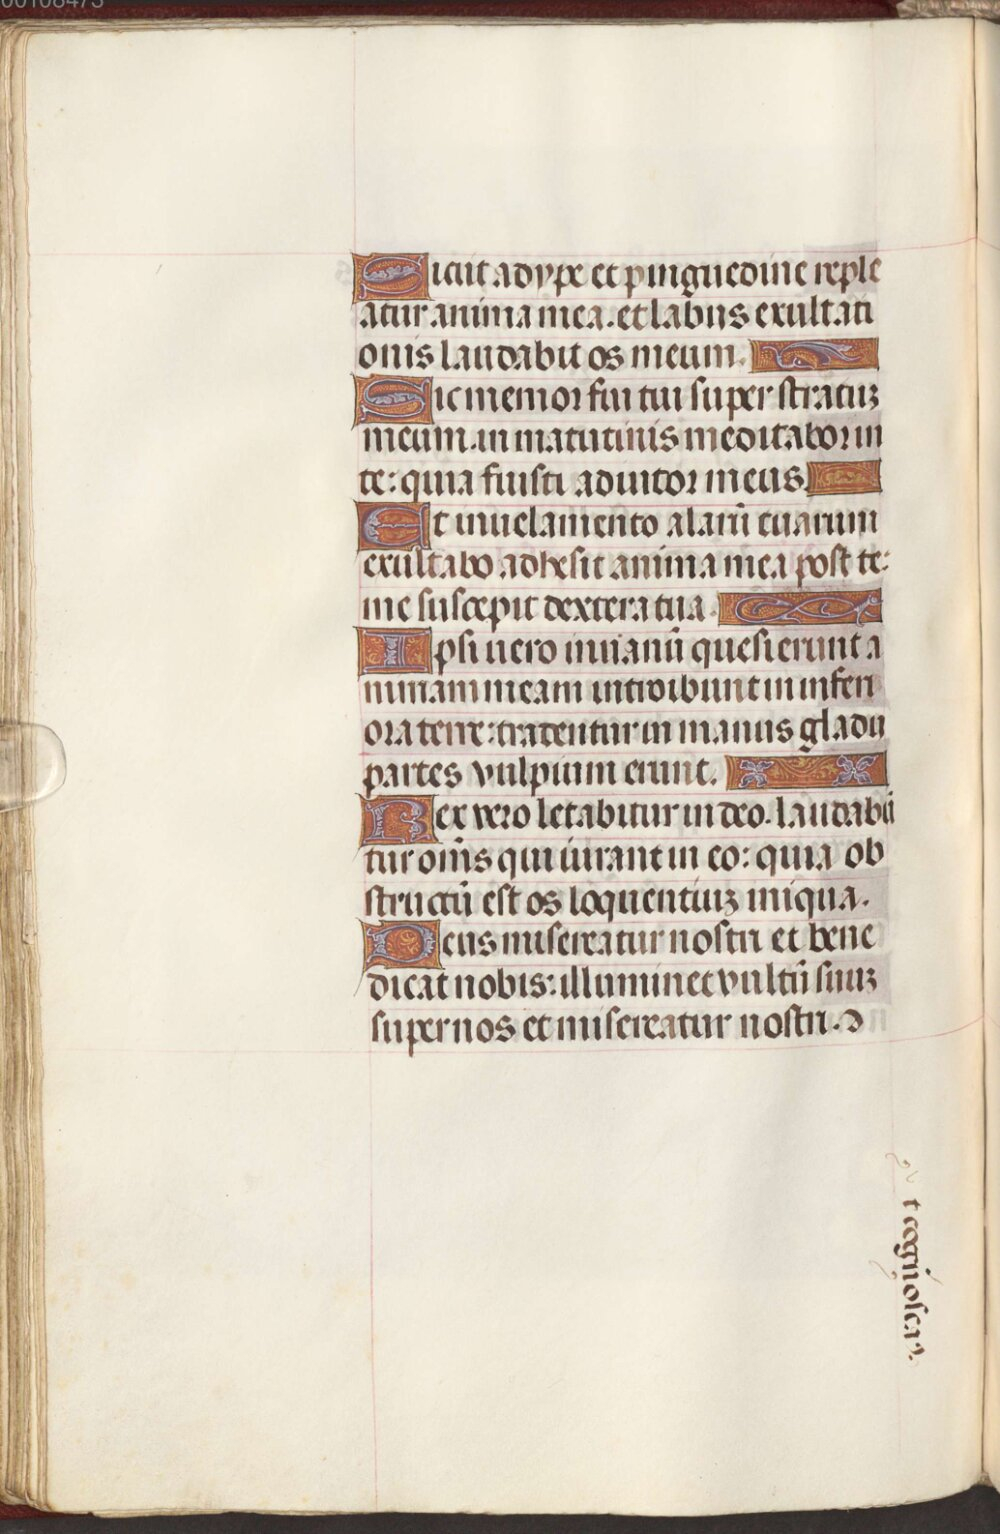 Sicut adype et pinguedine reple
atur anima mea. et labiis exultati
onis laudabit os meum.
Sic memor fui tui super stratuz
meum. in matutinis meditabor in
te: quia fuisti adiutor meus.
Et in uelamento alarū tuarum
exultabo adhesit anima mea post te:
me suscepit dextera tua.
Ipsi uero in uanū quesierunt a
nimam meam introibunt in inferi
ora terre: tradentur in manus gladii
partes vulpium erunt.
Rex vero letabitur in deo. laudabū
tur om̄s qui iurant in eo: quia ob
structū est os loquentiuz iniqua.
Deus misereatur nostri et bene
dicat nobis: illuminet vultū suuz
super nos et misereatur nostri.
t cogn̄osca